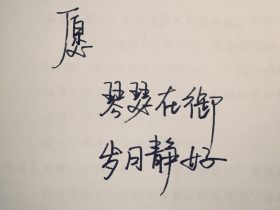 愿
琴瑟在御
岁月静好